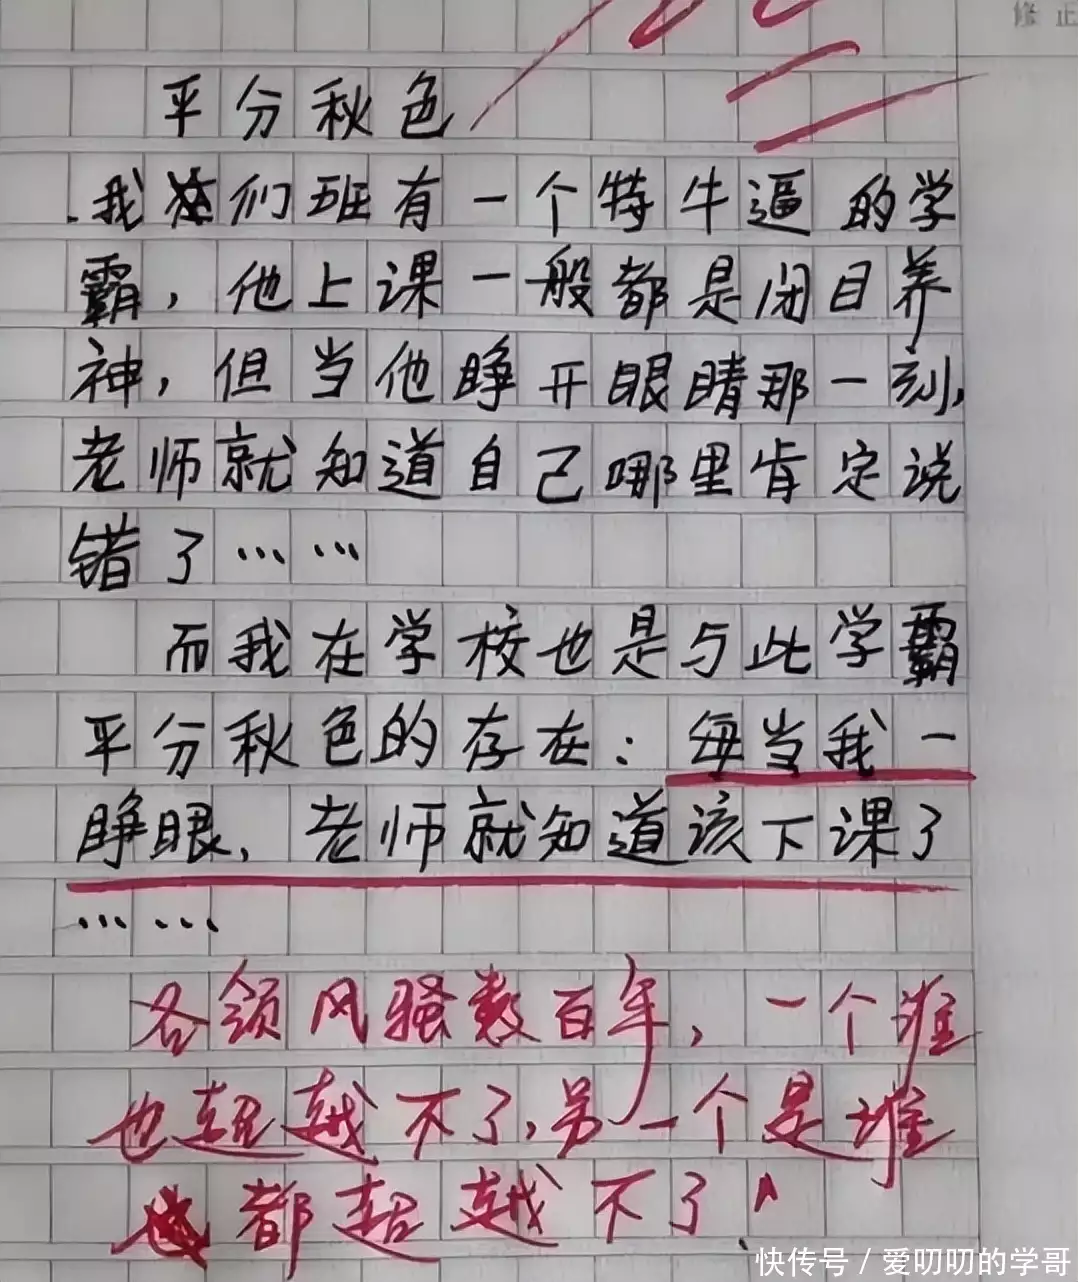 修正
平分秋色
我们班有一个特牛逼的学
霸，他上课一般都是闭目养
神，但当他睁开眼睛那一刻，
老师就知道自己哪里肯定说
错了……
而我在学校也是与此学霸
平分秋色的存在：每当我一
睁眼，老师就知道该下课了
……
各领风骚数百年，一个谁
也超越不了，另一个是谁
都超越不了
快传号 / 爱叨叨的学哥